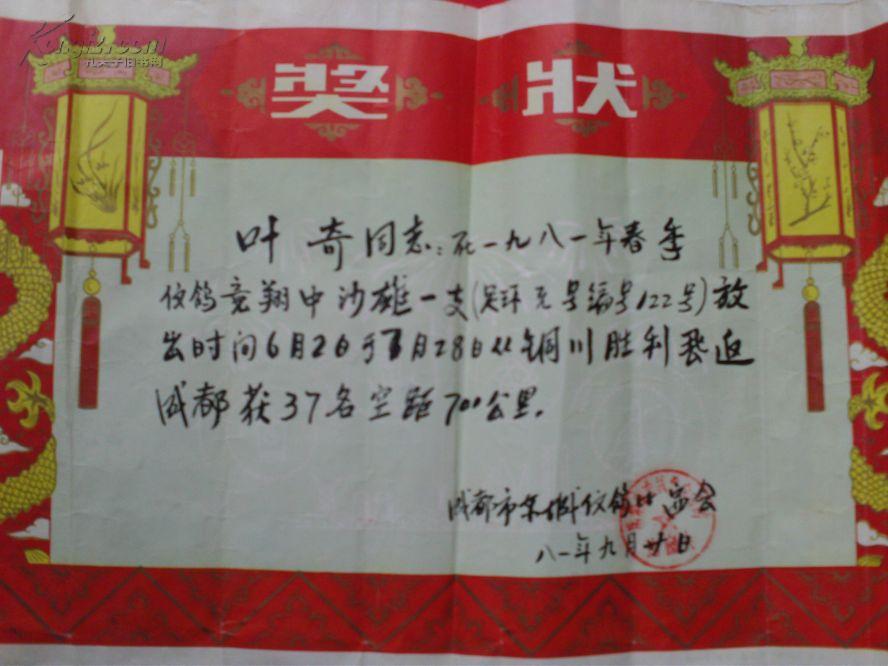 Kongfz.com
孔夫子旧书网
奖状
叶奇同志:在一九八一年春季
信鸽竞翔中沙雄一支(足环无号编号122号)放
出时间6月26于6月28日从铜川胜利飞返
成都获37名空距700公里.
成都市信鸽协会
八一年九月廿日